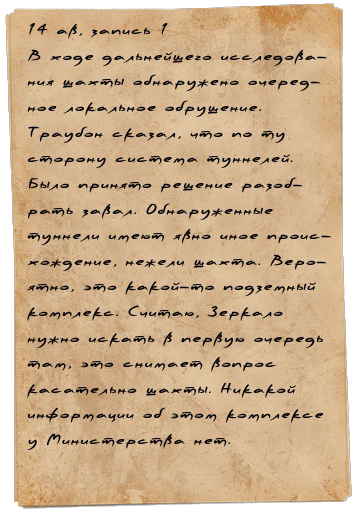 14 ав, запись 1
В ходе дальнейшего исследова-
ния шахты обнаружено очеред-
ное локальное обрушение.
Траубон сказал, что по ту
сторону система туннелей.
Было принято решение разоб-
рать завал. Обнаруженные
туннели имеют явно иное проис-
хождение, нежели шахта. Веро-
ятно, это какой-то подземный
комплекс. Считаю, Зеркало
нужно искать в первую очередь
там, это снимает вопрос
касательно шахты. Никакой
информации об этом комплексе
у Министерства нет.